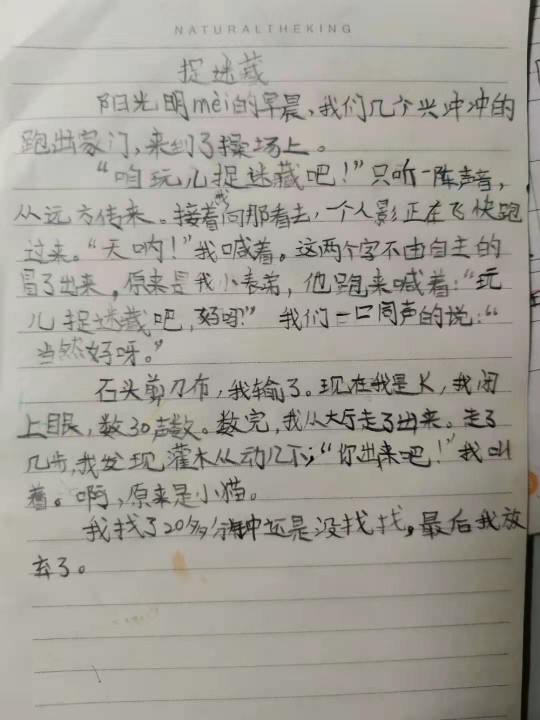 NATURALTHEKING
捉迷藏
阳光明mèi的早晨,我们几个兴冲冲的
跑出家门,来到了操场上。
“咱玩儿捉迷藏吧!”只听一阵声音,
从远方传来。接着向那看去,一个人影正在飞快跑
过来。“天呐!”我喊着。这两个字不由自主的
冒了出来,原来是我小表弟,他跑来喊着:“玩
儿捉迷藏吧,好吗?”我们一口同声的说:“
当然好呀。”
石头剪刀布,我输了。现在我是K,我闭
上眼,数30声数。数完,我从大厅走了出来。走了
几步,我发现灌木从动几下;“你出来吧!”我叫
着。啊,原来是小猫。
我找了20多分钟还是没找找,最后我放
弃了。